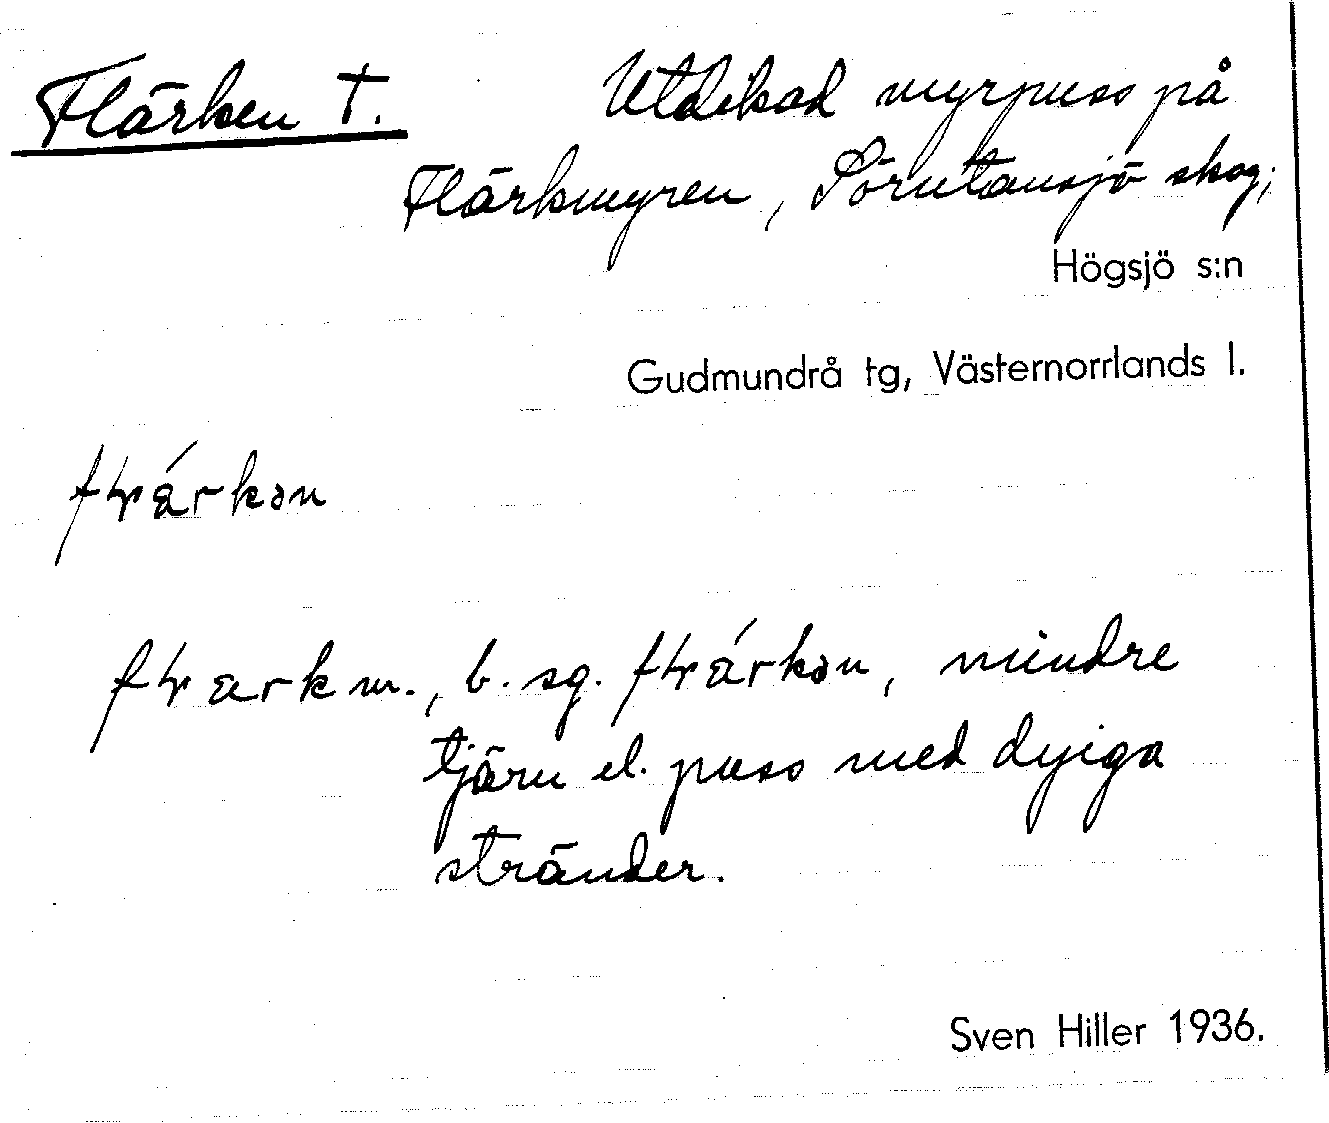 Flärken T. Utdikad myrpuss på
Flärkmyren, Sörutansjö skog;
Högsjö s:n
Gudmundrå tg, Västernorrlands l.
mindre
tjärn el. puss med dyiga
stränder.
Sven Hiller 1936.